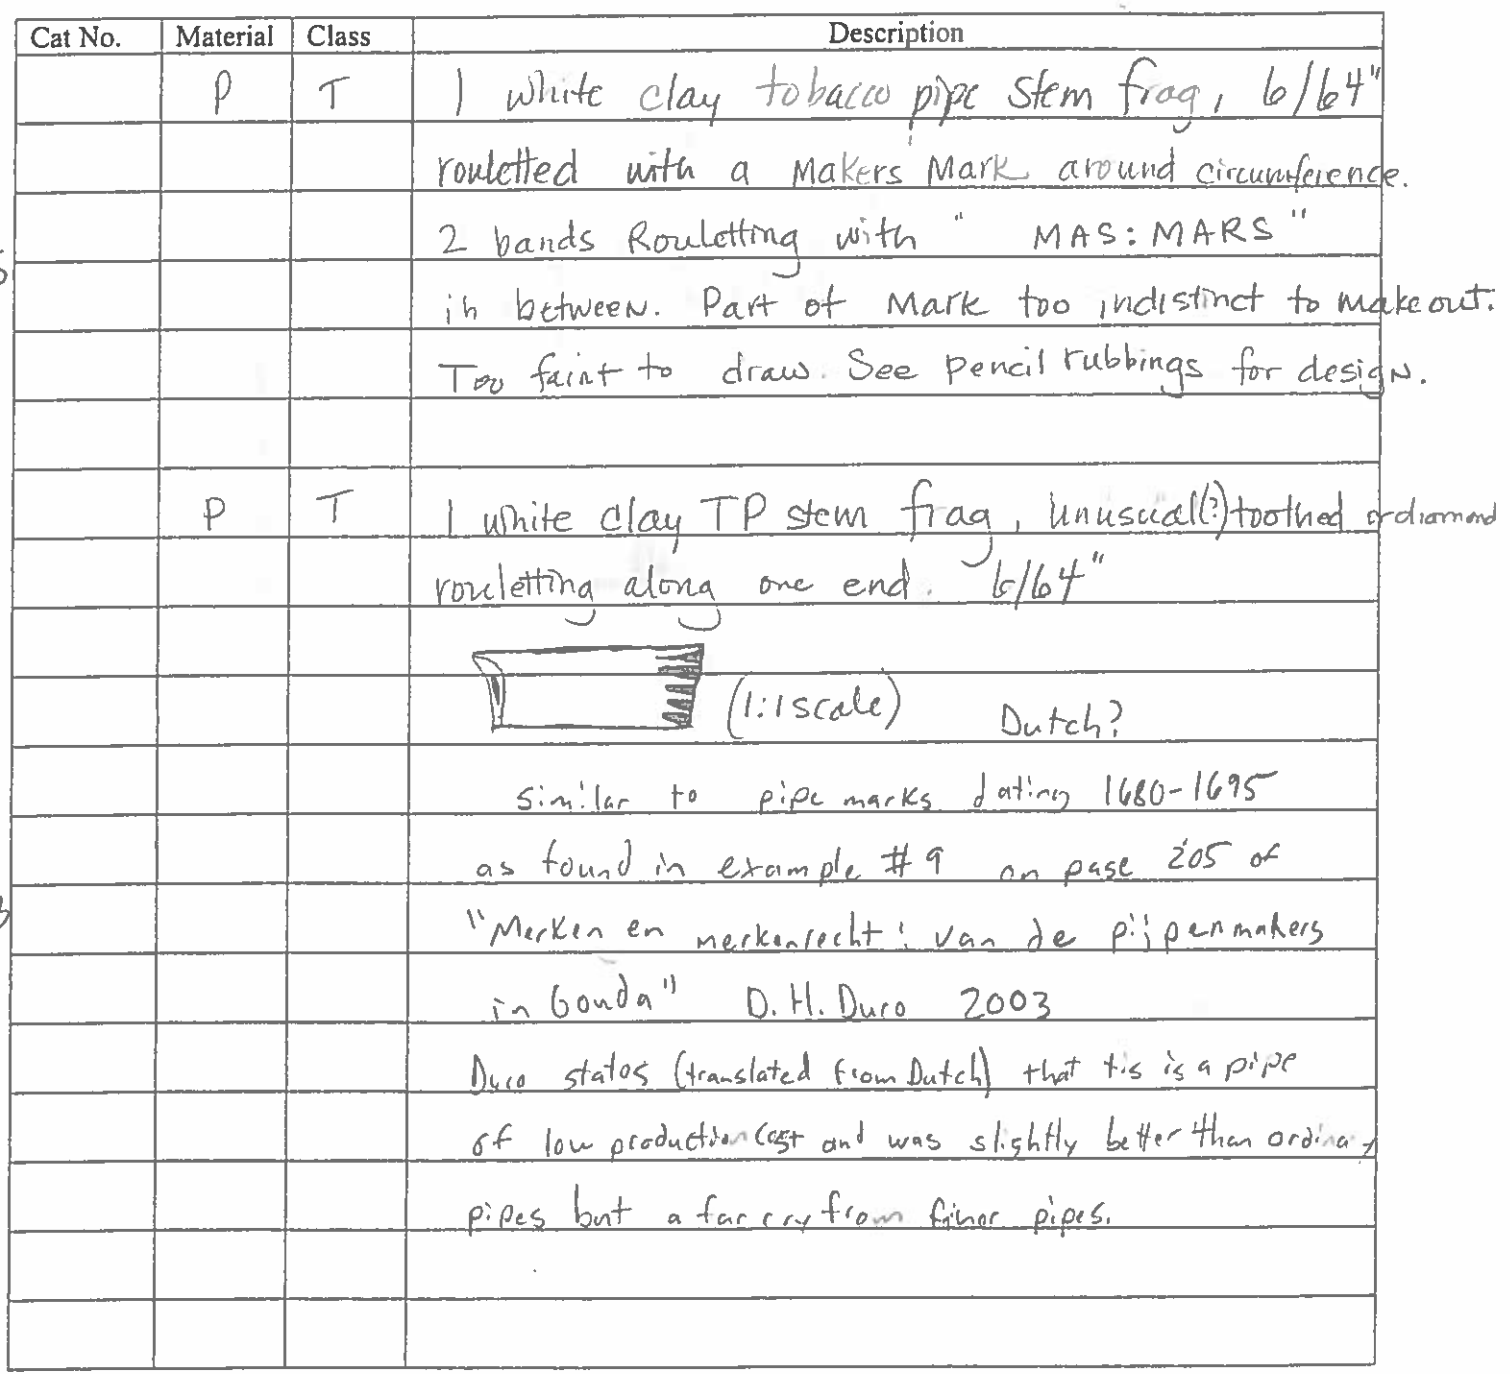 Cat No. Material Class Description
P T 1 white clay tobacco pipe stem frag, 6/64"
rouletted with a Makers Mark around circumference.
2 bands Rouletting with " MAS:MARS"
in between. Part of Mark too indistinct to make out.
Too faint to draw. See pencil rubbings for design.
P T 1 white clay TP stem frag, unusual(?) toothed or diamond
rouletting along one end. 6/64"
(1:1 scale) Dutch?
similar to pipe marks dating 1680-1695
as found in example #9 on page 205 of
"Merken en merkenrecht: van de pijpenmakers
in Gouda" D.H. Duco 2003
Duco states (translated from Dutch) that tis is a pipe
of low production cost and was slightly better than ordinary
pipes but a far cry from finer pipes.